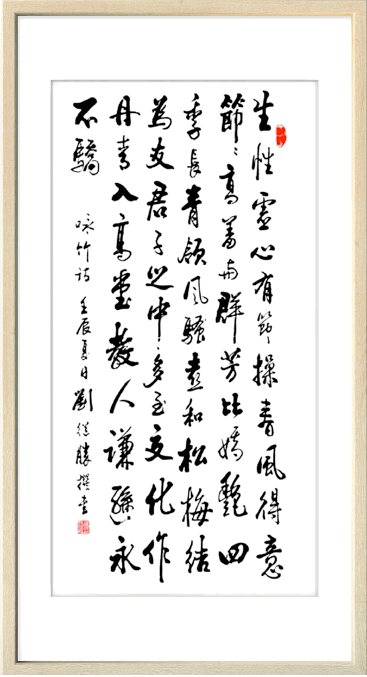 生性虛心有節操春風得意
節〻高羞與群芳比嬌艷四
季長青領風騷喜和松梅結
為友君子之中多至交化作
丹青入高堂教人謙遜永
不驕
咏竹詩 壬辰夏日 劉從勝撰書